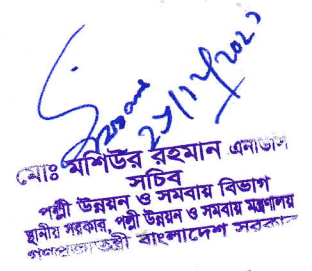 ২৭/১২/২০২৩
মোঃ মশিউর রহমান এনডিসি
সচিব
পল্লী উন্নয়ন ও সমবায় বিভাগ
স্থানীয় সরকার, পল্লী উন্নয়ন ও সমবায় মন্ত্রণালয়
গণপ্রজাতন্ত্রী বাংলাদেশ সরকার